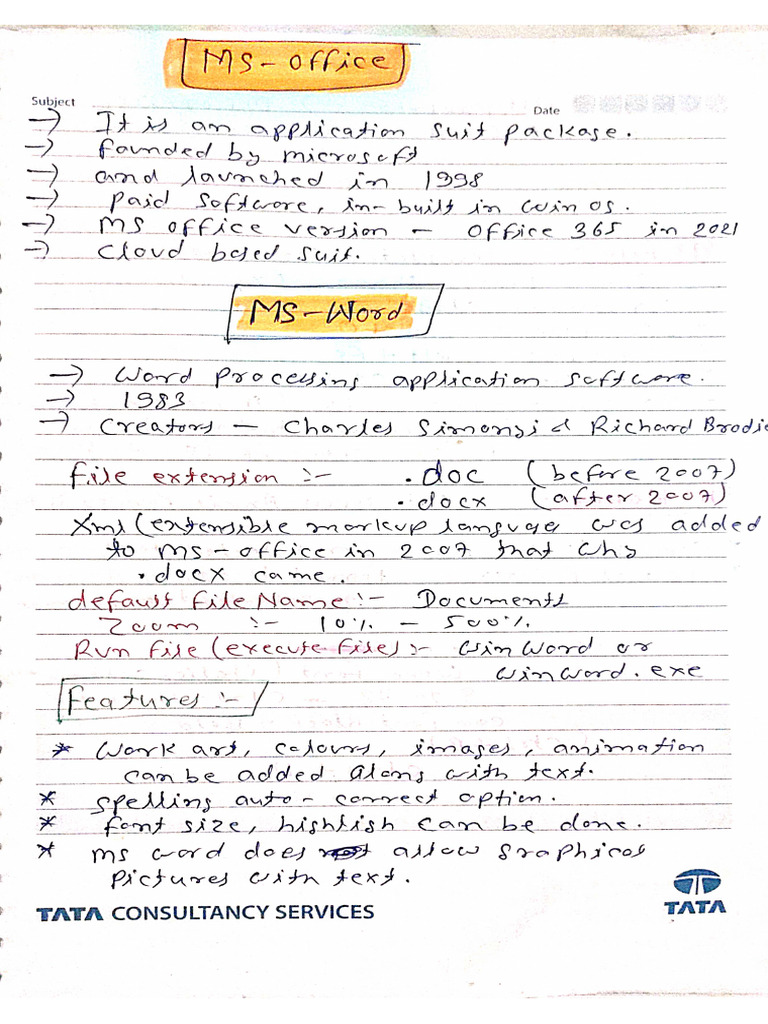 MS-Office
Subject
Date
→ It is an application suit package.
→ founded by microsoft
→ and launched in 1998
→ Paid software, in-built in win os.
→ MS office version - office 365 in 2021
→ Cloud based suit.
MS-Word
→ Word Processing application software.
→ 1983
→ Creators - Charles Simonyi & Richard Brodie
file extension :- .doc (before 2007)
.docx (after 2007)
Xml (extensible markup language was added
to ms-office in 2007 that why
.docx came.
default file Name :- Documents
Zoom :- 10% - 500%
Run file (execute file) :- WinWord or
WinWord.exe
Features :-
* Work art, colours, images, animation
can be added along with text.
* spelling auto-correct option.
* font size, highlish can be done.
* ms word does allow graphical
pictures with text.
TATA CONSULTANCY SERVICES
TATA